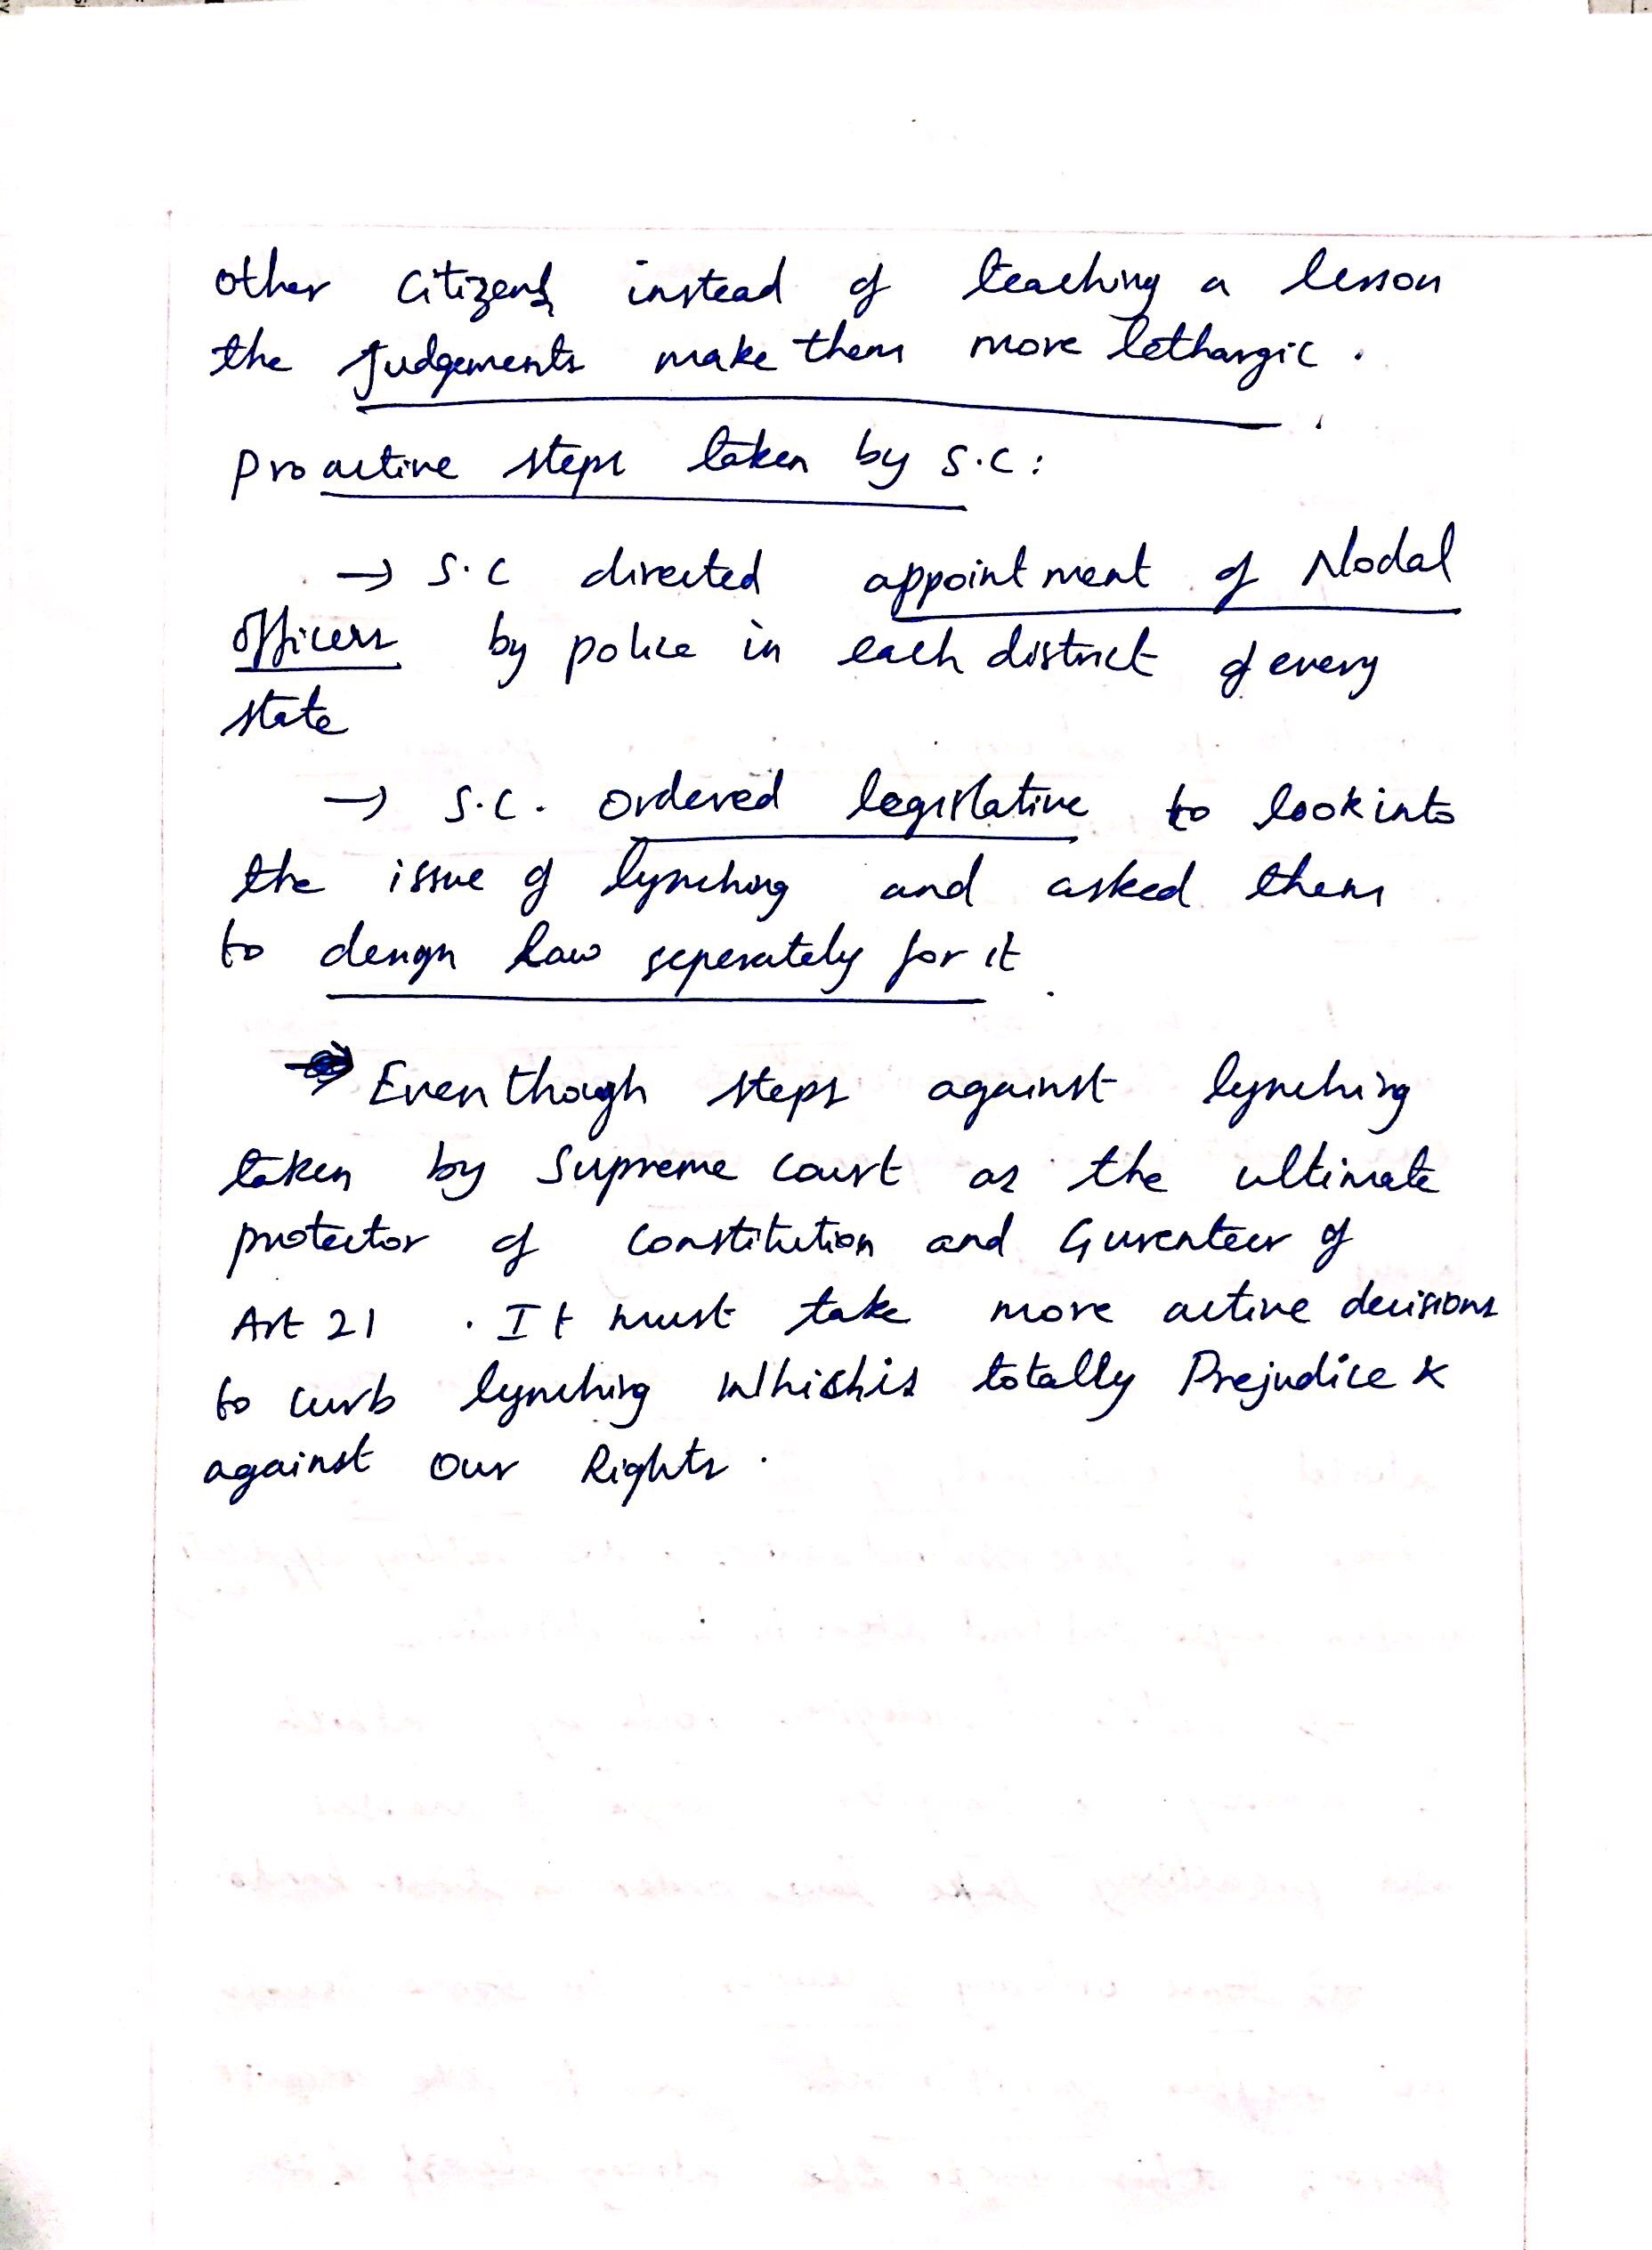 other citizens instead of teaching a lesson
the judgements make them more lethargic.
Proactive steps taken by S.C:
→ S.C directed appointment of Nodal
officers by police in each district of every
state
→ S.C. ordered legislative to look into
the issue of lynching and asked them
to design law seperately for it.
Eventhough steps against lynching
taken by Supreme Court as the ultimate
protector of constitution and Gurenteer of
Art 21 . It must take more active decisions
to curb lynching which is totally Prejudice &
against Our Rights.